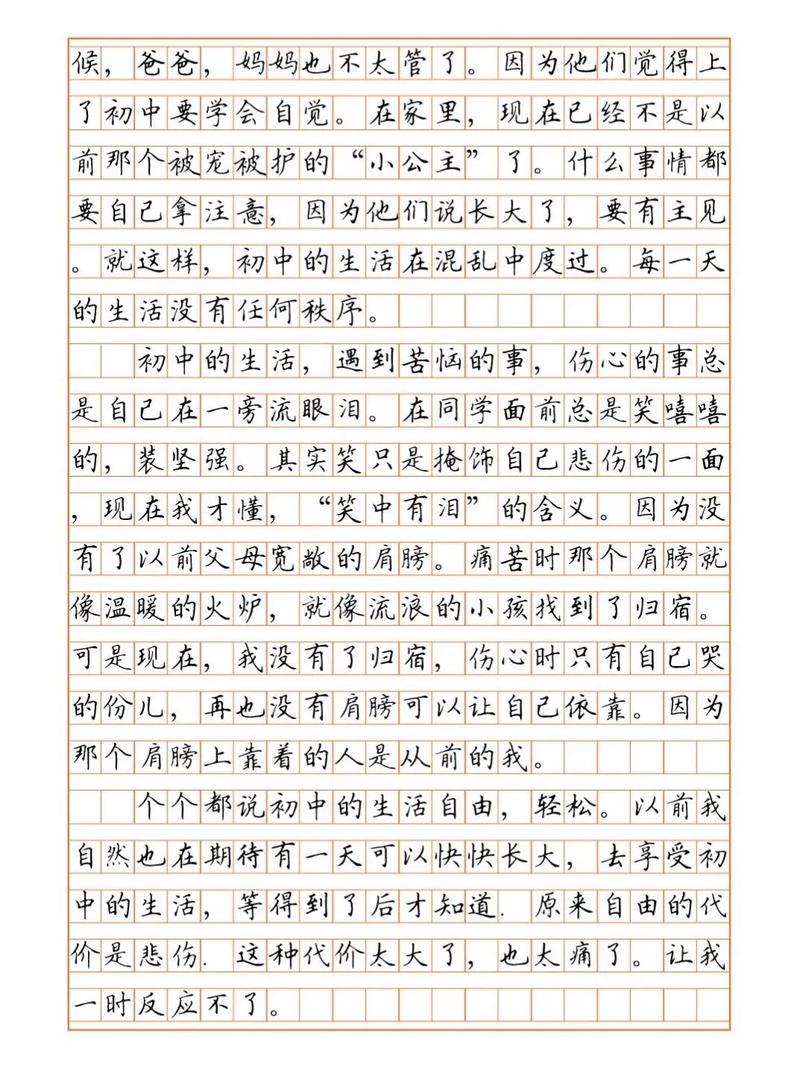 候，爸爸，妈妈也不太管了。因为他们觉得上
了初中要学会自觉。在家里，现在已经不是以
前那个被宠被护的“小公主”了。什么事情都
要自己拿注意，因为他们说长大了，要有主见
。就这样，初中的生活在混乱中度过。每一天
的生活没有任何秩序。
初中的生活，遇到苦恼的事，伤心的事总
是自己在一旁流眼泪。在同学面前总是笑嘻嘻
的，装坚强。其实笑只是掩饰自己悲伤的一面
，现在我才懂，“笑中有泪”的含义。因为没
有了以前父母宽敞的肩膀。痛苦时那个肩膀就
像温暖的火炉，就像流浪的小孩找到了归宿。
可是现在，我没有了归宿，伤心时只有自己哭
的份儿，再也没有肩膀可以让自己依靠。因为
那个肩膀上靠着的人是从前的我。
个个都说初中的生活自由，轻松。以前我
自然也在期待有一天可以快快长大，去享受初
中的生活，等得到了后才知道．原来自由的代
价是悲伤．这种代价太大了，也太痛了。让我
一时反应不了。